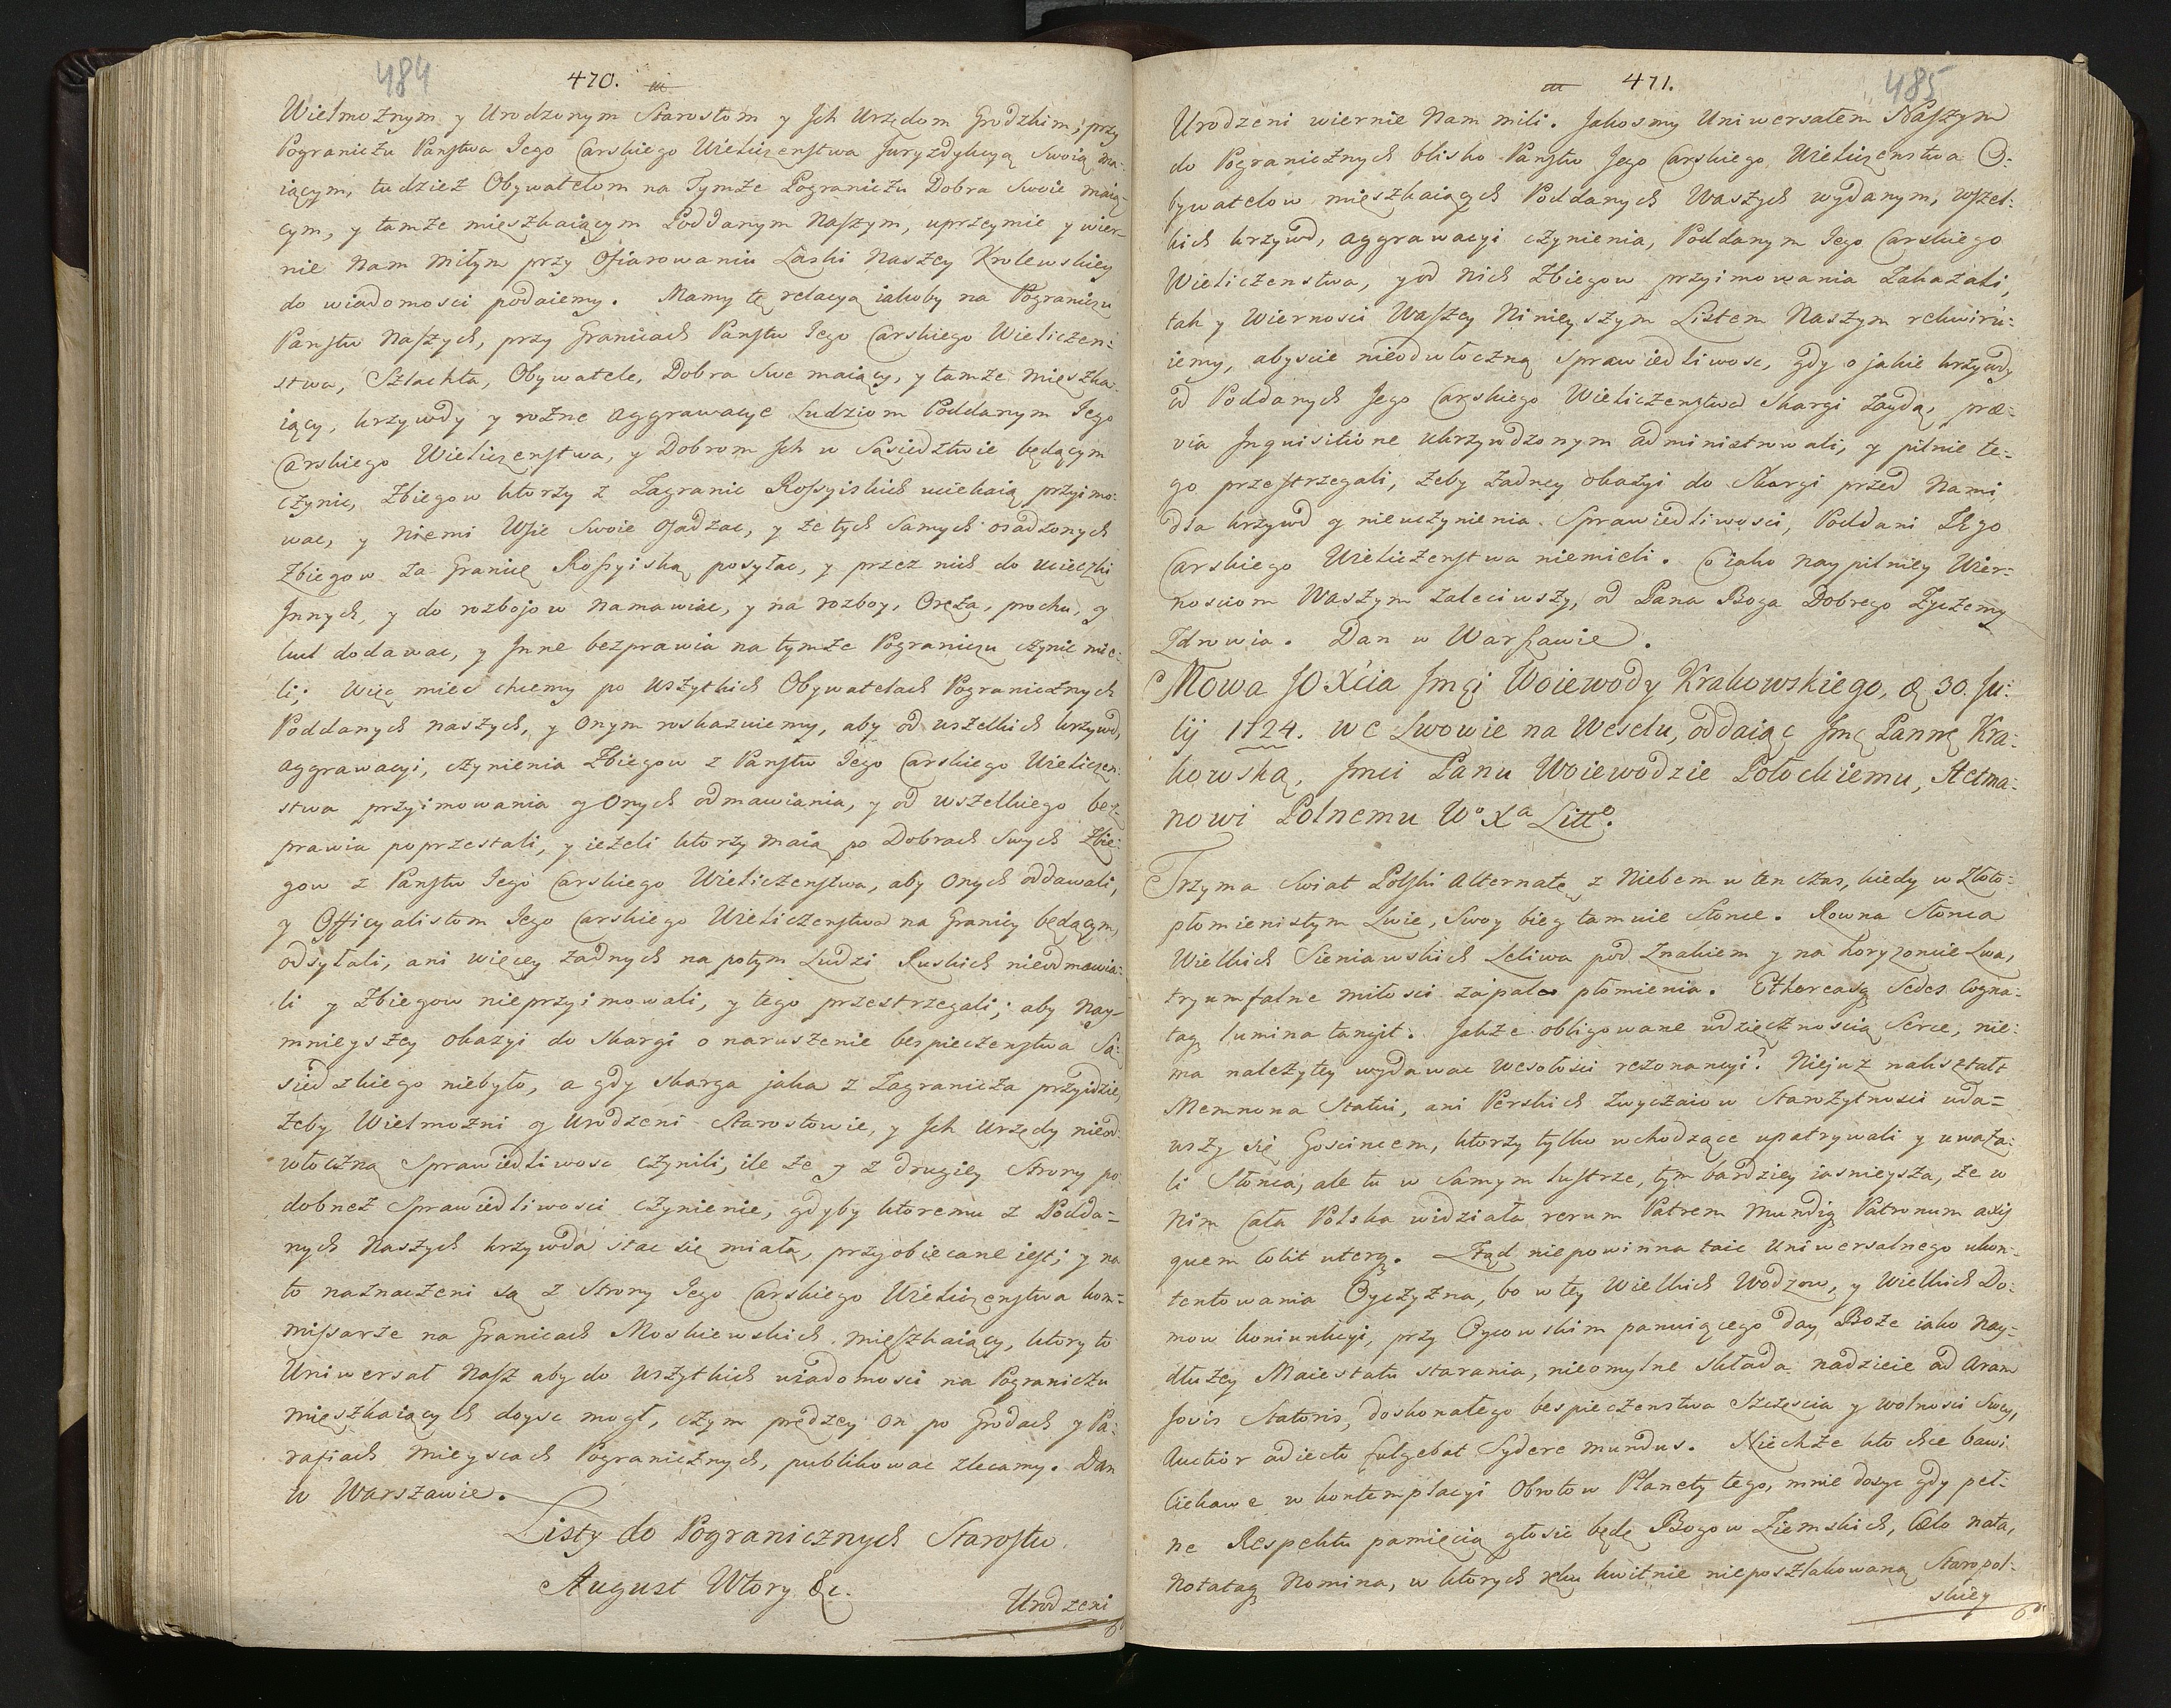 484
470.
Wielmożnym y Urodzonym Starostom y Jch Urzędom Grodzkim, przy
Pograniczu Panstwa Jego Carskiego Wieliczenstwa Juryzdykcyą Swoią ma-
iącym, tudziesz Obywatelom na Tymże Pograniczu Dobra Swoie maią-
cym, y tamże mieszkaiącym Poddanym Naszym, uprzeymie y wier-
nie Nam miłym przy Ofiarowaniu Łaski Naszey Krolewskiey
do wiadomosci podaiemy. Mamy tę relacyą iakoby na Pograniczu
Panstw Naszych, przy Granicach Panstw Jego Carskiego Wieliczen:
stwa, Szlachta, Obywatele, Dobra Swe maiący, y tamże mieszka
iący, krzywdy y rożne aggrawacye Ludziom Poddanym Jego
Carskiego Wieliczenstwa, y Dobrom Jch w Sąsiedztwie będącym
czynic, Zbiegow ktorzy z Zagranic Rossyiskich uciekaią przyimo-
wac, y niemi Wsie Swoie osadzac, y że tych samych osadzonych
Zbiegow za Granicę Rossyiską posyłac, y przez nich do ucieczki
Jnnych, y do rozbojow namawiac, y na rozboy, Oręża, prochu, y
kul dodawac, y Jnne bezprawia na tymże Pograniczu czynic mie-
li; Więc miec chcemy po wszytkich Obywatelach Pogranicznych
Poddanych naszych, y onym roskazuiemy, aby od wszelkich krzywd,
aggrawacyi, czynienia Zbiegow z Panstw Jego Carskiego Wieliczen:
stwa przyimowania y onych odmawiania, y od wszelkiego bez
prawia poprzestali, y ieżeli ktorzy maią po Dobrach Swych Zbie:
gow z Panstw Jego Carskiego Wieliczenstwa, aby onych oddawali,
y Officyalistom Jego Carskiego Wieliczenstwa na Granicy będącym,
odsyłali, ani więcey żadnych na potym Ludzi Ruskich nieodmawia:
li y Zbiegow nieprzyimowali, y tego przestrzegali; aby nay-
mnieyszey okazyi do skargi o naruszenie bespieczenstwa Są:
siedzkiego niebyło, a gdy skarga jaka z Zagranicza przyidzie,
żeby Wielmożni y Urodzeni Starostowie, y Jch Urzędy nieod:
włoczną Sprawiedliwosc czynili, ile że y z drugiey Strony po
dobnez Sprawiedliwosci czynienie, gdyby ktoremu z Podda=
nych Naszych krzywda stac się miała, przyobiecane iest; y na
to naznaczeni są z Strony Jego Carskiego Wieliczenstwa kom=
missarze na Granicach Moskiewskich mieszkaiący, ktory to
Uniwersał Nasz aby do wszytkich wiadomosci na Pograniczu
mieszkaiących doysc mogł, czym prędzey on po Grodach y Pa:
rafiach mieyscach Pogranicznych, publikowac zlecamy. Dan
w Warszawie.
Listy do Pogranicznych Starostw
August Wtory &c.
Urodzeni
471.
485
Urodzeni wiernie Nam mili. Jakosmy Uniwersałem Naszym
do Pogranicznych blisko Panstw Jego Carskiego Wieliczenstwa O:
bywatelow mieszkaiących Poddanych Waszych wydanym, wszel:
kich krzywd, aggrawacyi czynienia, Poddanym Jego Carskiego
Wieliczenstwa, y od nich Zbiegow przyimowania Zakazali,
tak y Wiernosci Waszey Ninieyszym Listem Naszym rekwiru:
iemy, abyscie nieodwłoczną Sprawiedliwosc, gdy o jakie krzywdy
od Poddanych Jego Carskiego Wieliczenstwa skargi zaydą, præ:
via Jnquisitione ukrzywdzonym administrowali, y pilnie te:
go przestrzegali, żeby żadney okazyi do Skargi przed Nami
dla krzywd y nieuczynienia Sprawiedliwosci, Poddani Jego
Carskiego Wieliczenstwa niemieli. Co iako naypilniey Wier:
nosciom Waszym zaleciwszy, od Pana Boga Dobrego Życzemy
Zdrowia. Dan w Warszawie.
Mowa JO Xcia Jmci Woiewody Krakowskiego, d. 30. Ju:
lij 1724. we Lwowie na Weselu, oddaiąc Jmc Pannę Kra:
kowską, Jmci Panu Woiewodzie Połockiemu, Hetma:
nowi Polnemu Wo Xa Litto.
Trzyma Swiat Polski Alternatę z Niebem w ten czas, kiedy w Złoto-
płomienistym Lwie, Swoy bieg tamuie Słonce. Rowna Słonca
Wielkich Sieniawskich Leliwa pod Znakiem y na horyzoncie Lwa,
tryumfalne miłosci zapala płomienia. Ethereasq Sedes cogna-
taq lumina tangit. Jakże obligowane wdzięcznoscią Serce, nie:
ma należytey wydawac wesołosci rezonancyi? Niejuż nakształt
Memnona Statui, ani Perskich zwyczaiow Starożytnosci uda=
wszy się Goscincem, ktorzy tylko wchodzące upatrywali y uważa:
li Słonca, ale tu w samym lustrze, tym bardziey iasnieysza, że w
nim Cała Polska widziała rerum Patrem Mundiq Patronum axis
quem colit uterq. Ztąd niepowinna taic Uniwersalnego ukon-
tentowania Oyczyzna, bo w tey Wielkich Wodzow, y Wielkich Do:
mow koniunkcyi, przy Oycowskim panuiącego day Boże iako nay=
dłużey Maiestatu starania, nieomylne składa nadzieie ad Aram
Jovis Statoris, doskonałego bespieczenstwa Szczęscia y wolnosci Swey,
Auctior adiecto fulgebat Sydere mundus. Niechże kto chce bawi
Ciekawe w kontemplacyi Obrotow Planety tego, mnie dosyc gdy peł-
ne Respektu pamięcią głosic będę Bogow Ziemskich, Cœlo nata,
Notataq Nomina, w ktorych kwitnie nieposzlakowaną Staropol-
skiey